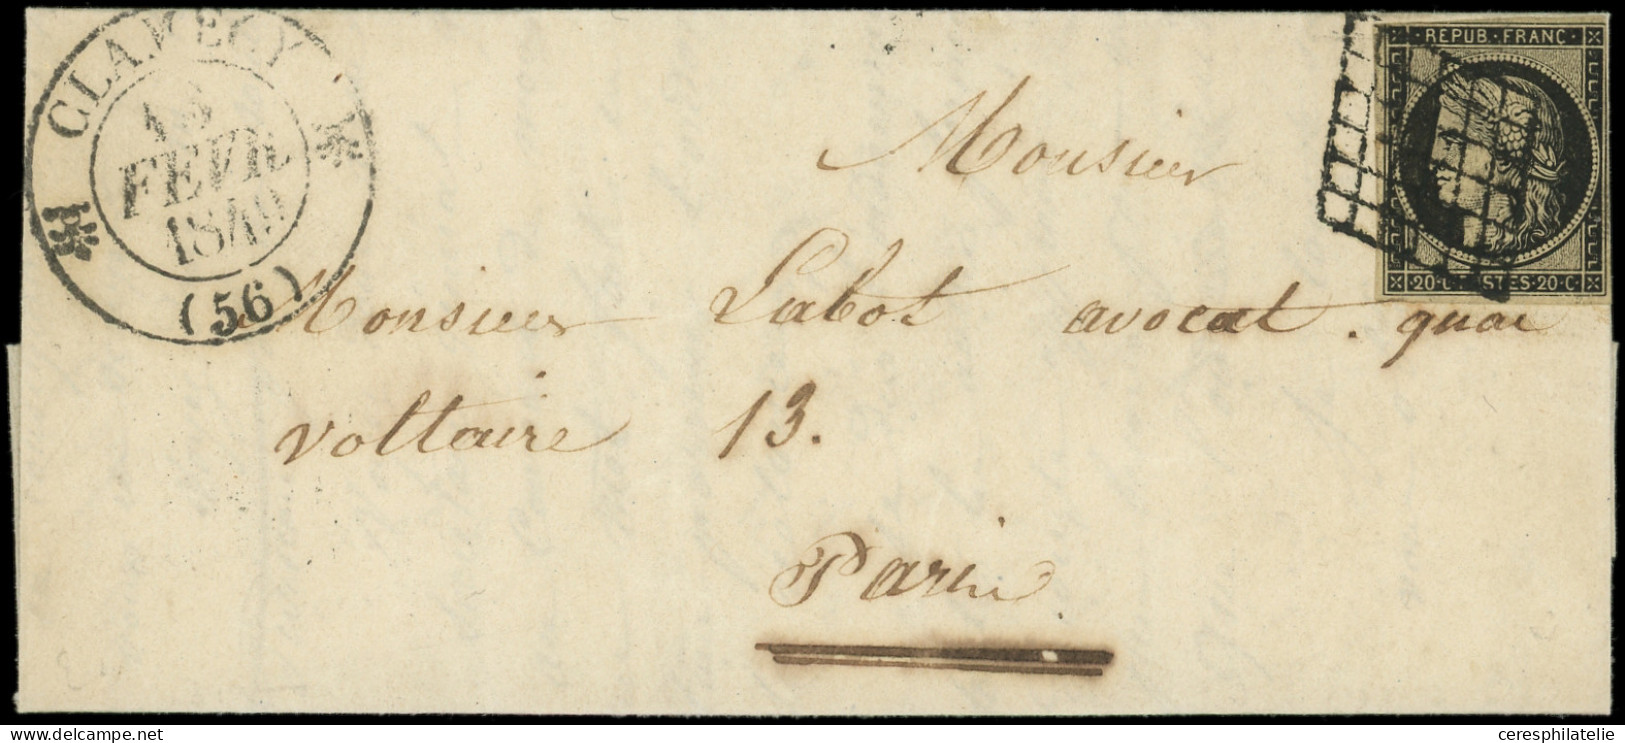 CLAMECY
FEVR.
1849
(56)
REPUB. FRANC.
20·C
20·C
Monsieur
Monsieur Labot avocat. quai
voltaire 13.
Paris
ceresphilatelie